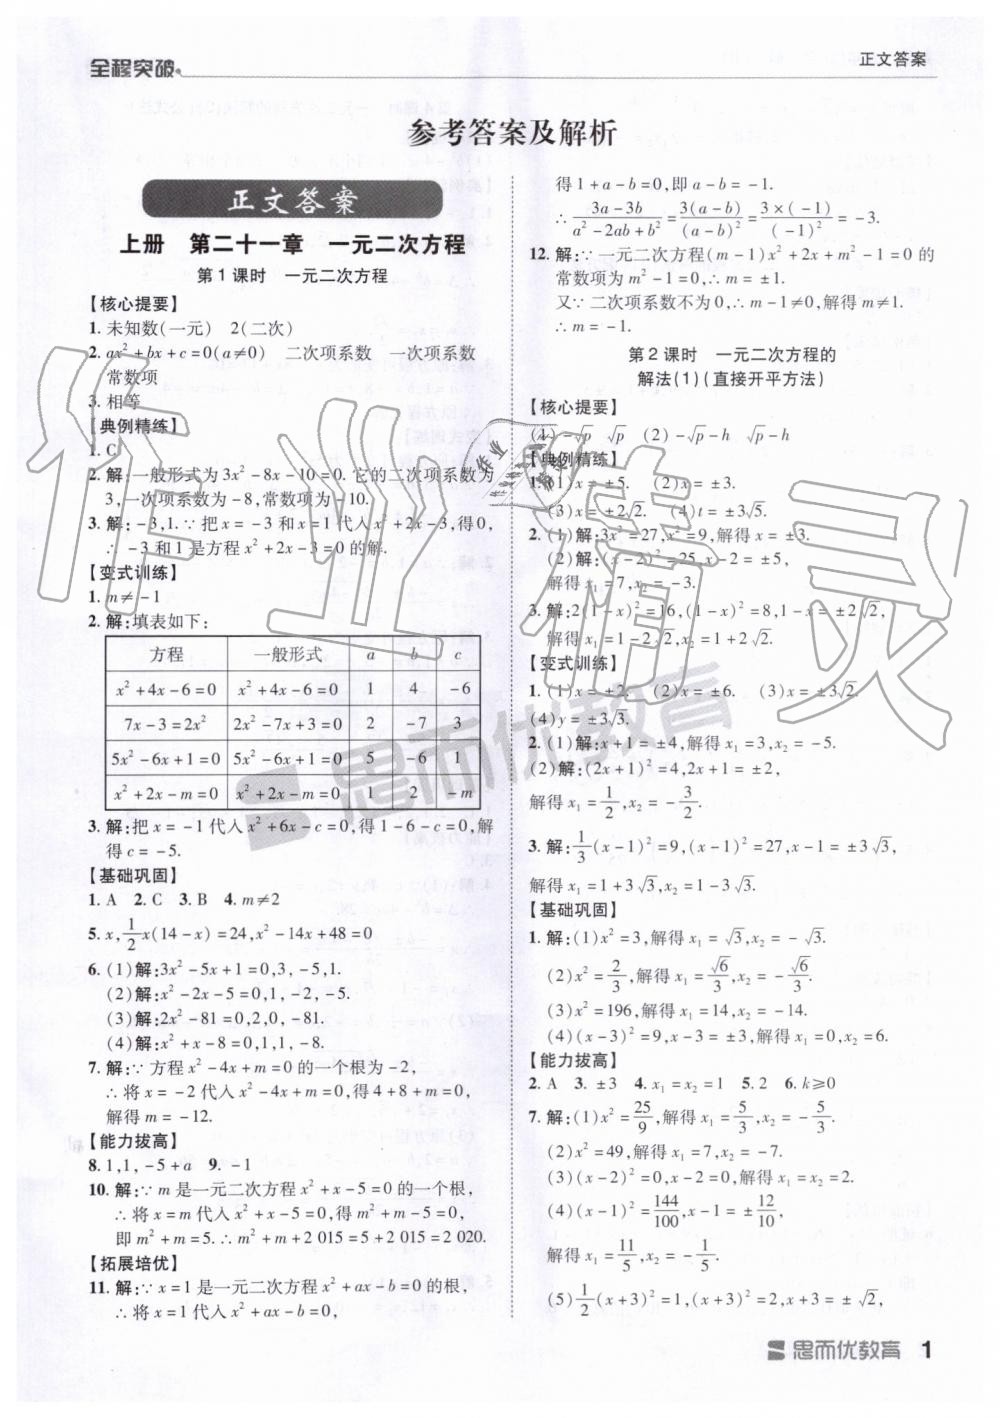 全程突破
正文答案
参考答案及解析
正文答案
上册 第二十一章 一元二次方程
第1课时 一元二次方程
【核心提要】
1. 未知数(一元) 2(二次)
2. ax²+bx+c=0(a≠0) 二次项系数 一次项系数
常数项
3. 相等
【典例精练】
1. C
2. 解:一般形式为3x²-8x-10=0. 它的二次项系数为
3,一次项系数为-8,常数项为-10.
3. 解:-3,1.∵把x=-3和x=1代入x²+2x-3,得0,
∴-3和1是方程x²+2x-3=0的解.
【变式训练】
1. m≠-1
2. 解:填表如下:
方程 一般形式 a b c
x²+4x-6=0 x²+4x-6=0 1 4 -6
7x-3=2x² 2x²-7x+3=0 2 -7 3
5x²-6x+1=0 5x²-6x+1=0 5 -6 1
x²+2x-m=0 x²+2x-m=0 1 2 -m
3. 解:把x=-1代入x²+6x-c=0,得1-6-c=0,解
得c=-5.
【基础巩固】
1. A 2. C 3. B 4. m≠2
5. x,1/2x(14-x)=24,x²-14x+48=0
6. (1)解:3x²-5x+1=0,3,-5,1.
(2)解:x²-2x-5=0,1,-2,-5.
(3)解:2x²-81=0,2,0,-81.
(4)解:x²+x-8=0,1,1,-8.
7. 解:∵方程x²-4x+m=0的一个根为-2,
∴将x=-2代入x²-4x+m=0,得4+8+m=0,
解得m=-12.
【能力拔高】
8. 1,1,-5+a 9. -1
10. 解:∵m是一元二次方程x²+x-5=0的一个根,
∴将x=m代入x²+x-5=0,得m²+m-5=0,
即m²+m=5.∴m²+m+2 015=5+2 015=2 020.
【拓展培优】
11. 解:∵x=1是一元二次方程x²+ax-b=0的根,
∴将x=1代入x²+ax-b=0,
得1+a-b=0,即a-b=-1.
∴(3a-3b)/(a²-2ab+b²)=3(a-b)/(a-b)²=3×(-1)/(-1)²=-3.
12. 解:∵一元二次方程(m-1)x²+2x+m²-1=0的
常数项为m²-1=0,∴m=±1.
又∵二次项系数不为0,∴m-1≠0,解得m≠1.
∴m=-1.
第2课时 一元二次方程的
解法(1)(直接开平方法)
【核心提要】
(1)-√p √p (2)-√p-h √p-h
【典例精练】
1. (1)x=±5. (2)x=±3.
(3)x=±2√2. (4)t=±3√5.
2. (1)解:3x²=27,x²=9,解得x=±3.
(2)解:(x-2)²=25,x-2=±5,
解得x₁=7,x₂=-3.
3. 解:2(1-x)²=16,(1-x)²=8,1-x=±2√2,
解得x₁=1-2√2,x₂=1+2√2.
【变式训练】
1. (1)x=±2. (2)x=±6. (3)x=±√3.
(4)y=±3√3.
2. (1)解:x+1=±4,解得x₁=3,x₂=-5.
(2)解:(2x+1)²=4,2x+1=±2,
解得x₁=1/2,x₂=-3/2.
3. 解:1/3(x-1)²=9,(x-1)²=27,x-1=±3√3,
解得x₁=1+3√3,x₂=1-3√3.
【基础巩固】
1. 解:(1)x²=3,解得x₁=√3,x₂=-√3.
(2)x²=2/3,解得x₁=√6/3,x₂=-√6/3.
(3)x²=196,解得x₁=14,x₂=-14.
(4)(x-3)²=9,x-3=±3,解得x₁=0,x₂=6.
【能力拔高】
2. A 3. ±3 4. x₁=x₂=1 5. 2 6. k≥0
7. 解:(1)x²=25/9,解得x₁=5/3,x₂=-5/3.
(2)x²=49,解得x₁=7,x₂=-7.
(3)(x-2)²=0,x-2=0,解得x₁=x₂=2.
(4)(x-1)²=144/100,x-1=±12/10,
解得x₁=11/5,x₂=-1/5.
(5)1/2(x+3)²=1,(x+3)²=2,x+3=±√2,
思而优教育
作业精灵
思而优教育 1